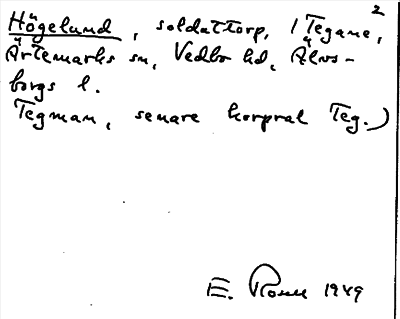 2
Högelund, soldattorp, i Tegane,
Ärtemarks sn, Vedbo hd, Älvs-
borgs l.
Tegman, senare korpral Teg.)
E. Rosell 1949